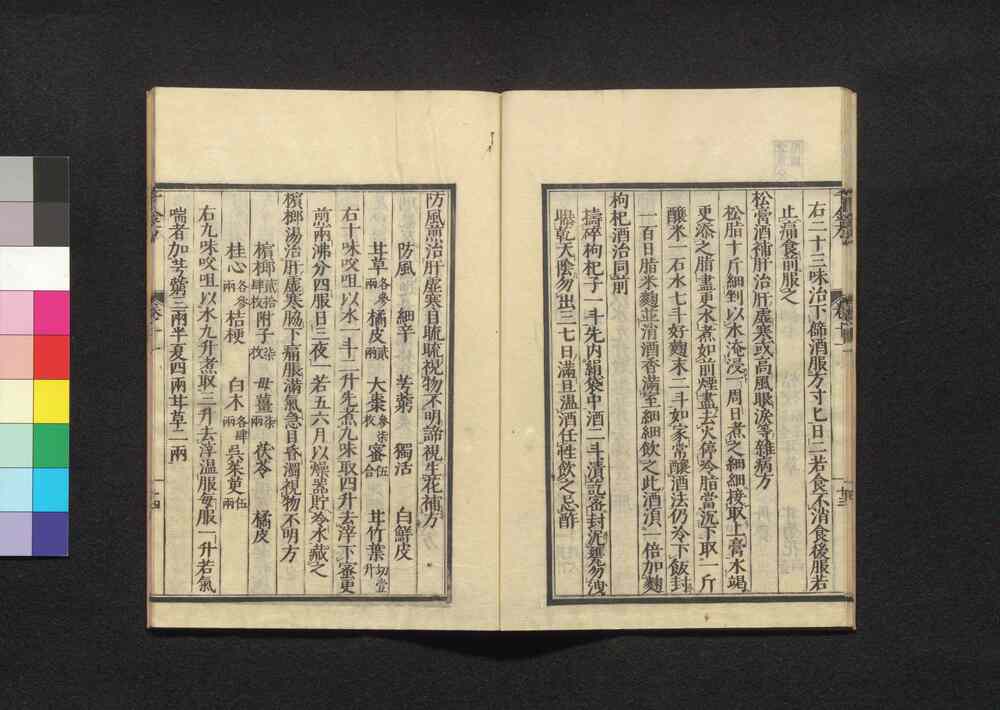 右二十三味治下篩酒服方寸匕日二若食不消食後服若
止痛食前服之
松膏酒補肝治肝虛寒或高風眼淚等雜病方
松脂十斤細剉以水淹浸一周日煮之細細接取上膏水竭
更添之脂盡更水煮如前煙盡去火停冷脂當沉下取一斤
釀米一石水七斗好麴末二斗如家常釀酒法仍冷下飯封
一百日脂米麴並消酒香滿室細細飲之此酒須一倍加麴
枸杞酒治同前
擣碎枸杞子一斗先內絹袋中酒二斗漬訖密封泥甕勿洩
曝乾天陰勿出三七日滿旦溫酒任性飲之忌酢
防風煎治肝虛寒目䀮䀮視物不明諦視生花補方
防風 細辛 芎藭 獨活 白鮮皮
甘草各參兩橘皮貳兩 大棗參柒枚蜜伍合 甘竹葉切壹升
右十味㕮咀以水一斗二升先煮九味取四升去滓下蜜更
煎兩沸分四服日三夜一若五六月以燥器貯冷水藏之
檳榔湯治肝虛寒脇下痛脹滿氣急目昏濁視物不明方
檳榔貳拾肆枚附子柒枚 母薑柒兩 茯苓 橘皮
桂心各參兩桔梗 白朮各肆兩吳茱萸伍兩
右九味㕮咀以水九升煮取三升去滓溫服每服一升若氣
喘者加芎藭三兩半夏四兩甘草二兩
十四